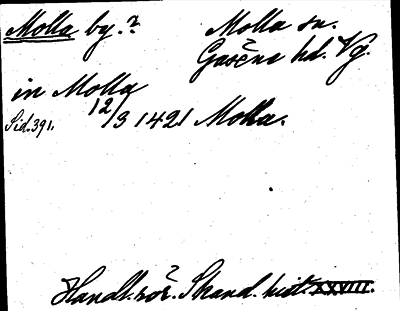 Molla by.?
Molla sn.
Gäsene hd. Vg.
in Molla
12/3 1421 Molla.
Sid. 391.
Handl. rör. Skand. hist. XXVIII.